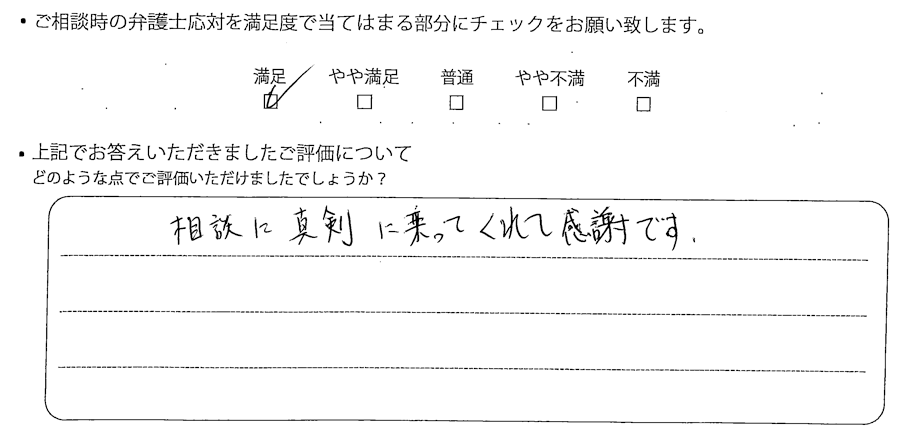 ・ご相談時の弁護士応対を満足度で当てはまる部分にチェックをお願い致します。
満足 やや満足 普通 やや不満 不満
☑ □ □ □ □
・上記でお答えいただきましたご評価について
どのような点でご評価いただけましたでしょうか？
相談に真剣に乗ってくれて感謝です.